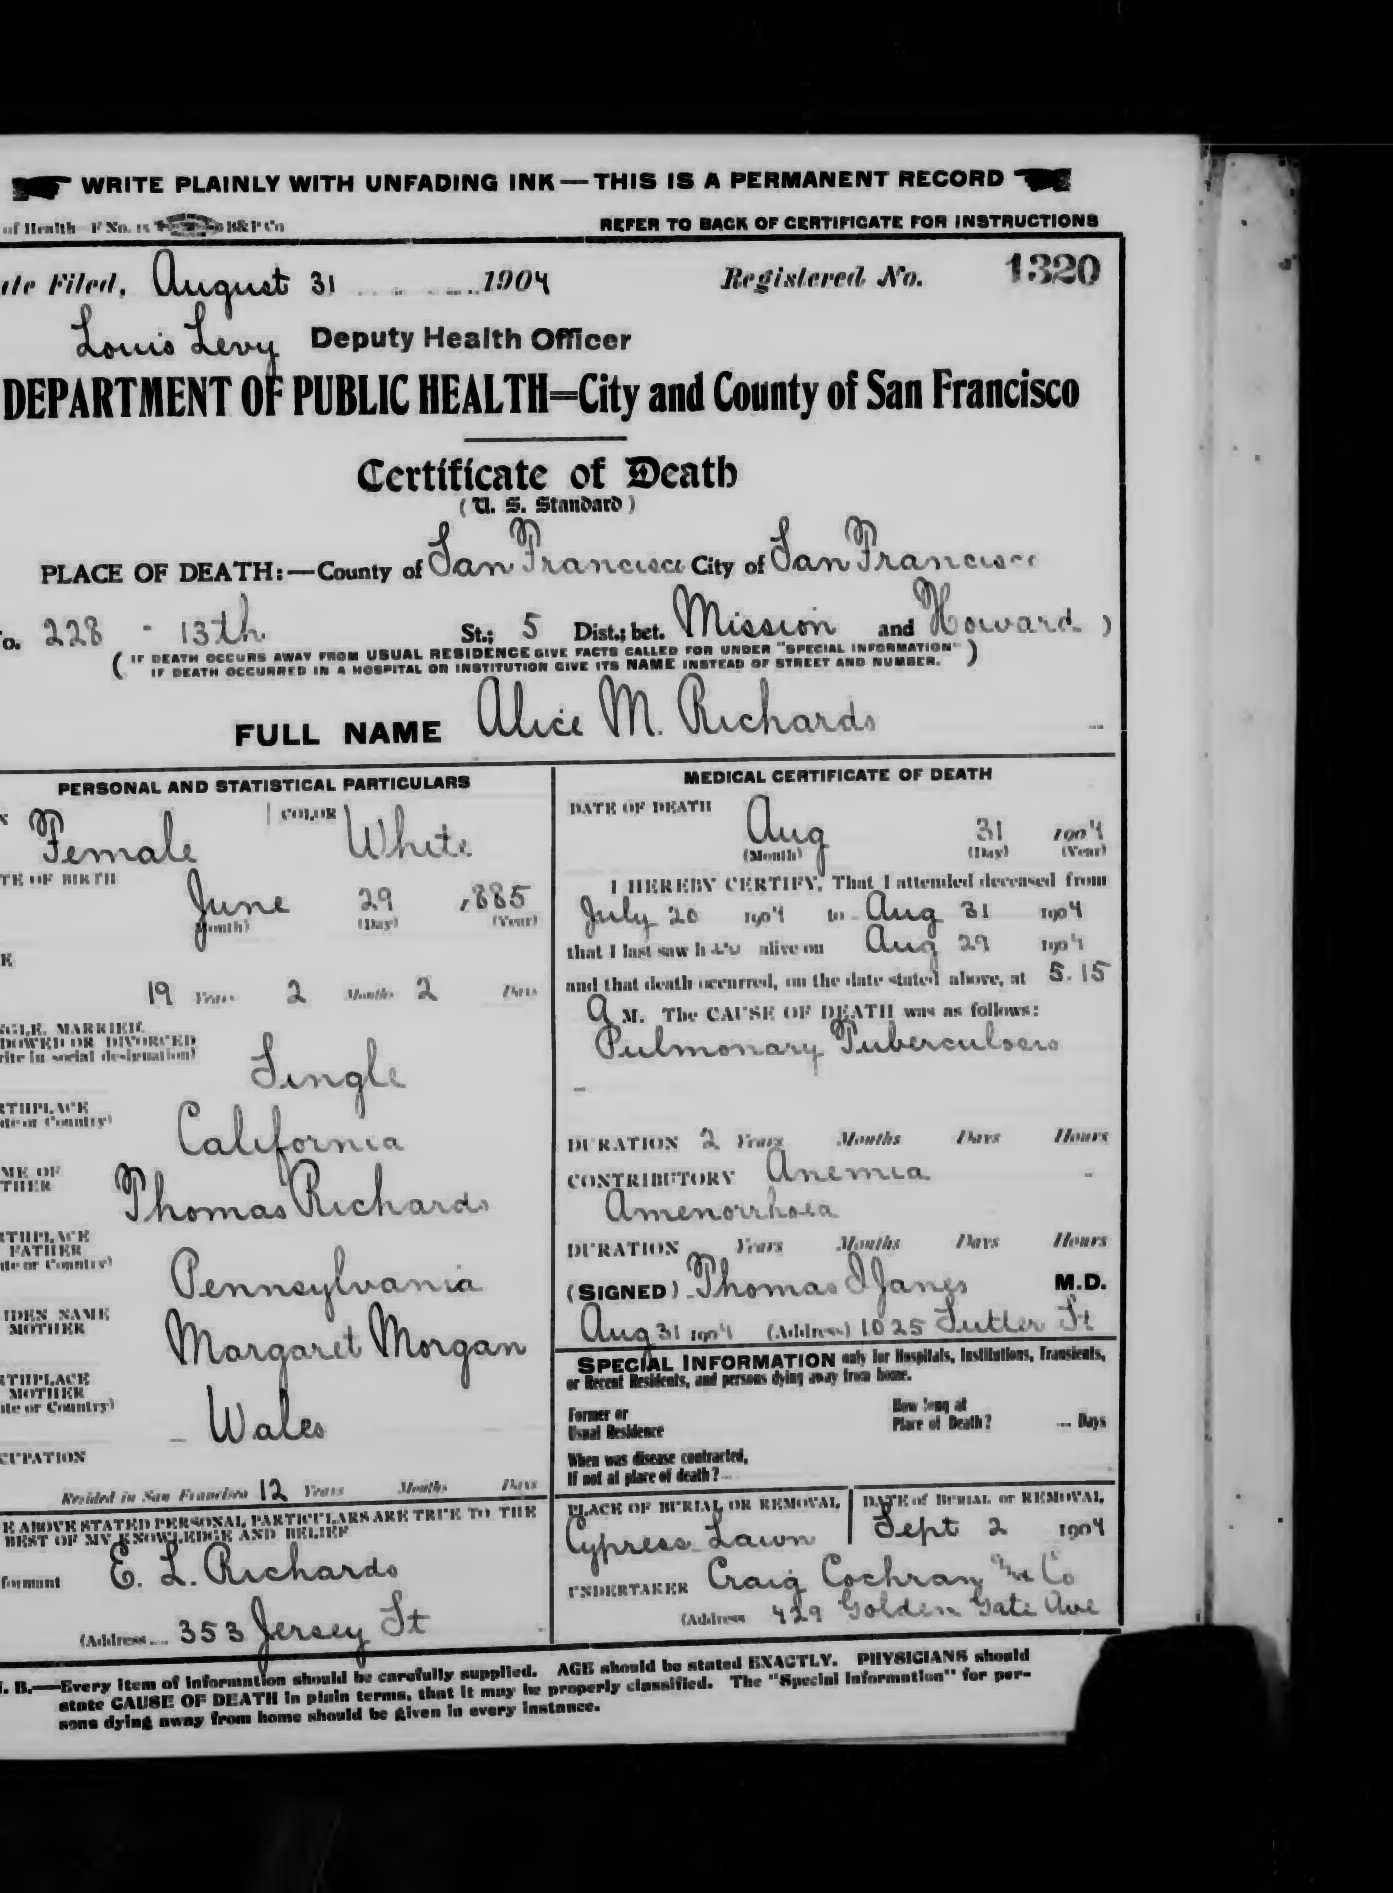 WRITE PLAINLY WITH UNFADING INK—THIS IS A PERMANENT RECORD
of Health—F No. 15 B&P Co
REFER TO BACK OF CERTIFICATE FOR INSTRUCTIONS
te Filed, August 31 1904 Registered No. 1320
Louis Levy Deputy Health Officer
DEPARTMENT OF PUBLIC HEALTH=City and County of San Francisco
Certificate of Death
(U. S. Standard)
PLACE OF DEATH:—County of San Francisco City of San Francisco
o. 228 - 13th St.; 5 Dist.; bet. Mission and Howard )
( IF DEATH OCCURS AWAY FROM USUAL RESIDENCE GIVE FACTS CALLED FOR UNDER "SPECIAL INFORMATION" )
IF DEATH OCCURRED IN A HOSPITAL OR INSTITUTION GIVE ITS NAME INSTEAD OF STREET AND NUMBER.
FULL NAME Alice M. Richards
PERSONAL AND STATISTICAL PARTICULARS
X Female COLOR White
TE OF BIRTH
June 29 1885
(Month) (Day) (Year)
E
19 Years 2 Months 2 Days
NGLE, MARRIED,
DOWED OR DIVORCED
rite in social designation)
Single
RTHPLACE
ate or Country)
California
ME OF
THER
Thomas Richards
RTHPLACE
FATHER
ate or Country)
Pennsylvania
IDEN NAME
MOTHER
Margaret Morgan
RTHPLACE
MOTHER
ate or Country)
Wales
CUPATION
Resided in San Francisco 12 Years Months Days
E ABOVE STATED PERSONAL PARTICULARS ARE TRUE TO THE
BEST OF MY KNOWLEDGE AND BELIEF
formant E. L. Richards
(Address 353 Jersey St
MEDICAL CERTIFICATE OF DEATH
DATE OF DEATH
Aug 31 1904
(Month) (Day) (Year)
I HEREBY CERTIFY, That I attended deceased from
July 20 1904 to Aug 31 1904
that I last saw her alive on Aug 29 1904
and that death occurred, on the date stated above, at 5.15
A M. The CAUSE OF DEATH was as follows:
Pulmonary Tuberculosis
DURATION 2 Years Months Days Hours
CONTRIBUTORY Anemia
Amenorrhoea
DURATION Years Months Days Hours
(SIGNED) Thomas Janes M.D.
Aug 31 1904 (Address) 1025 Sutter St
SPECIAL INFORMATION only for Hospitals, Institutions, Transients,
or Recent Residents, and persons dying away from home.
Former or
Usual Residence
How long at
Place of Death? Days
When was disease contracted,
If not at place of death?
PLACE OF BURIAL OR REMOVAL DATE of BURIAL or REMOVAL
Cypress Lawn Sept 2 1904
UNDERTAKER Craig Cochran and Co
(Address 429 Golden Gate Ave
N. B.—Every item of information should be carefully supplied. AGE should be stated EXACTLY. PHYSICIANS should
state CAUSE OF DEATH in plain terms, that it may be properly classified. The "Special Information" for per-
sons dying away from home should be given in every instance.